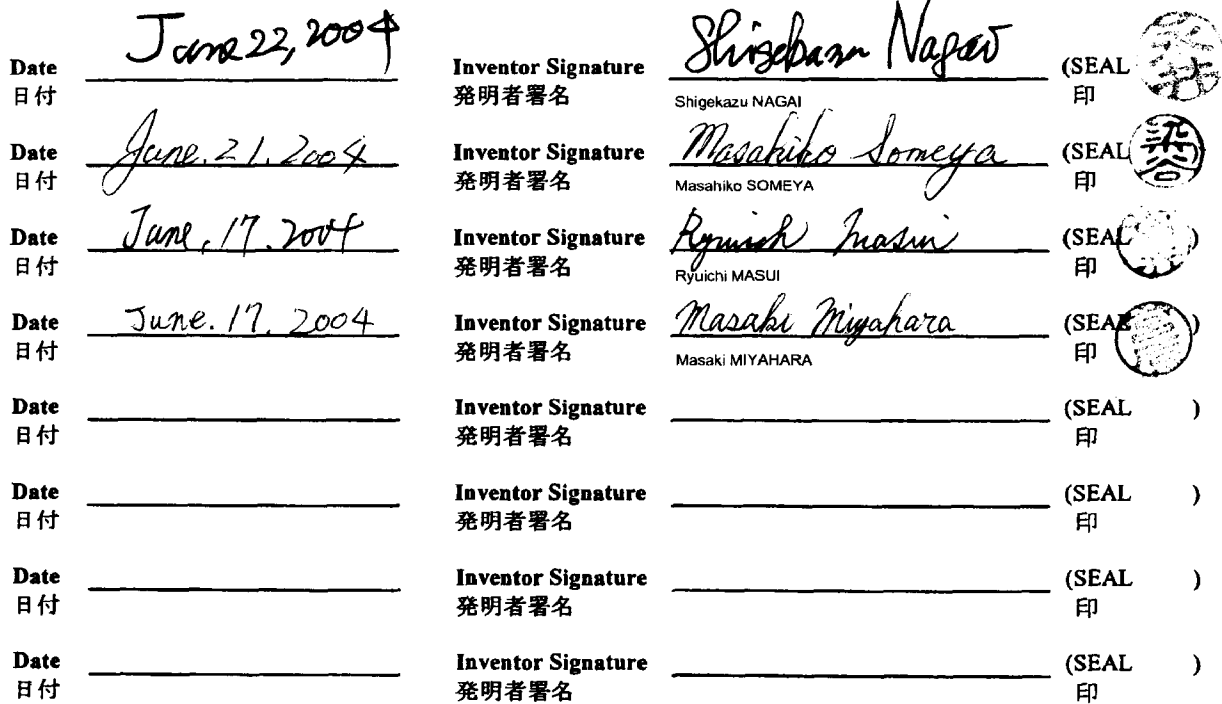 Date June 22, 2004 Inventor Signature Shigekazu Nagai (SEAL
日付 発明者署名 Shigekazu NAGAI 印
Date June. 21. 2004 Inventor Signature Masahiko Someya (SEAL
日付 発明者署名 Masahiko SOMEYA 印
染谷
Date June. 17. 2004 Inventor Signature Ryuichi Masui (SEAL )
日付 発明者署名 Ryuichi MASUI 印
Date June. 17. 2004 Inventor Signature Masaki Miyahara (SEAL )
日付 発明者署名 Masaki MIYAHARA 印
Date Inventor Signature (SEAL )
日付 発明者署名 印
Date Inventor Signature (SEAL )
日付 発明者署名 印
Date Inventor Signature (SEAL )
日付 発明者署名 印
Date Inventor Signature (SEAL )
日付 発明者署名 印